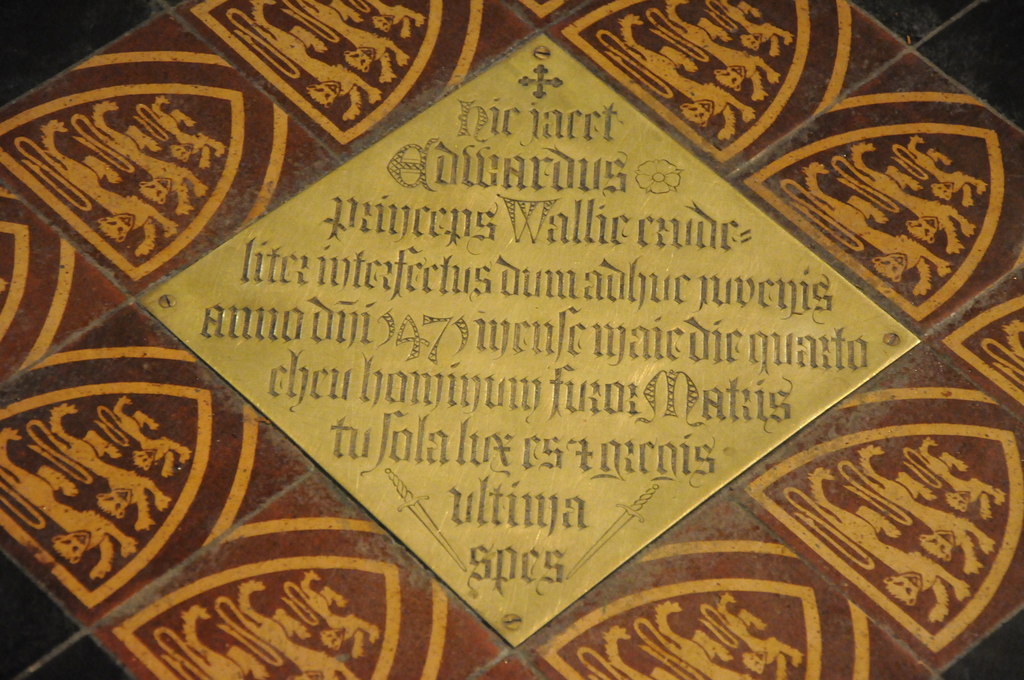 hic jacet
Edwardus
princeps Wallie crude=
liter interfectus dum adhuc juvenis
anno dñi 1471 mense maie die quarto
eheu hominum furor Matris
tu sola lux es & gregis
ultima
spes